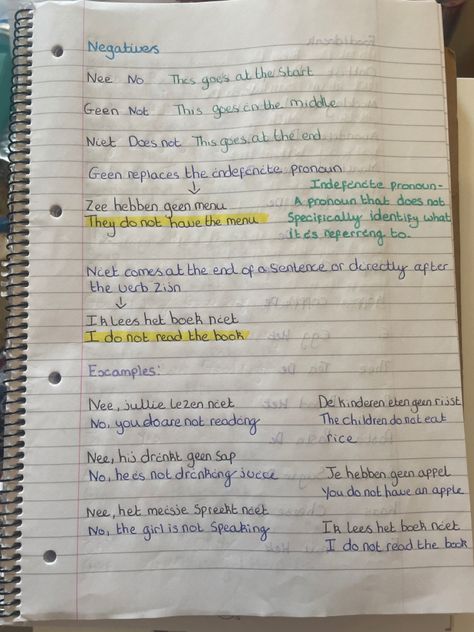 Negatives
Nee No This goes at the start
Geen Not This goes in the middle
Niet Does not This goes at the end
Geen replaces the indefinite pronoun
↓
Zee hebben geen menu
They do not have the menu
Indefinite pronoun-
A pronoun that does not
Specifically identify what
it's referring to.
Niet comes at the end of a sentence or directly after
the verb Zijn
↓
Ik lees het boek niet
I do not read the book
Examples:
Nee, jullie lezen niet
No, you are not reading
De kinderen eten geen rijst
The children do not eat
rice
Nee, hij drinkt geen sap
No, he is not drinking juice
Je hebben geen appel
You do not have an apple
Nee, het meisje spreekt niet
No, the girl is not speaking
Ik lees het boek niet
I do not read the book